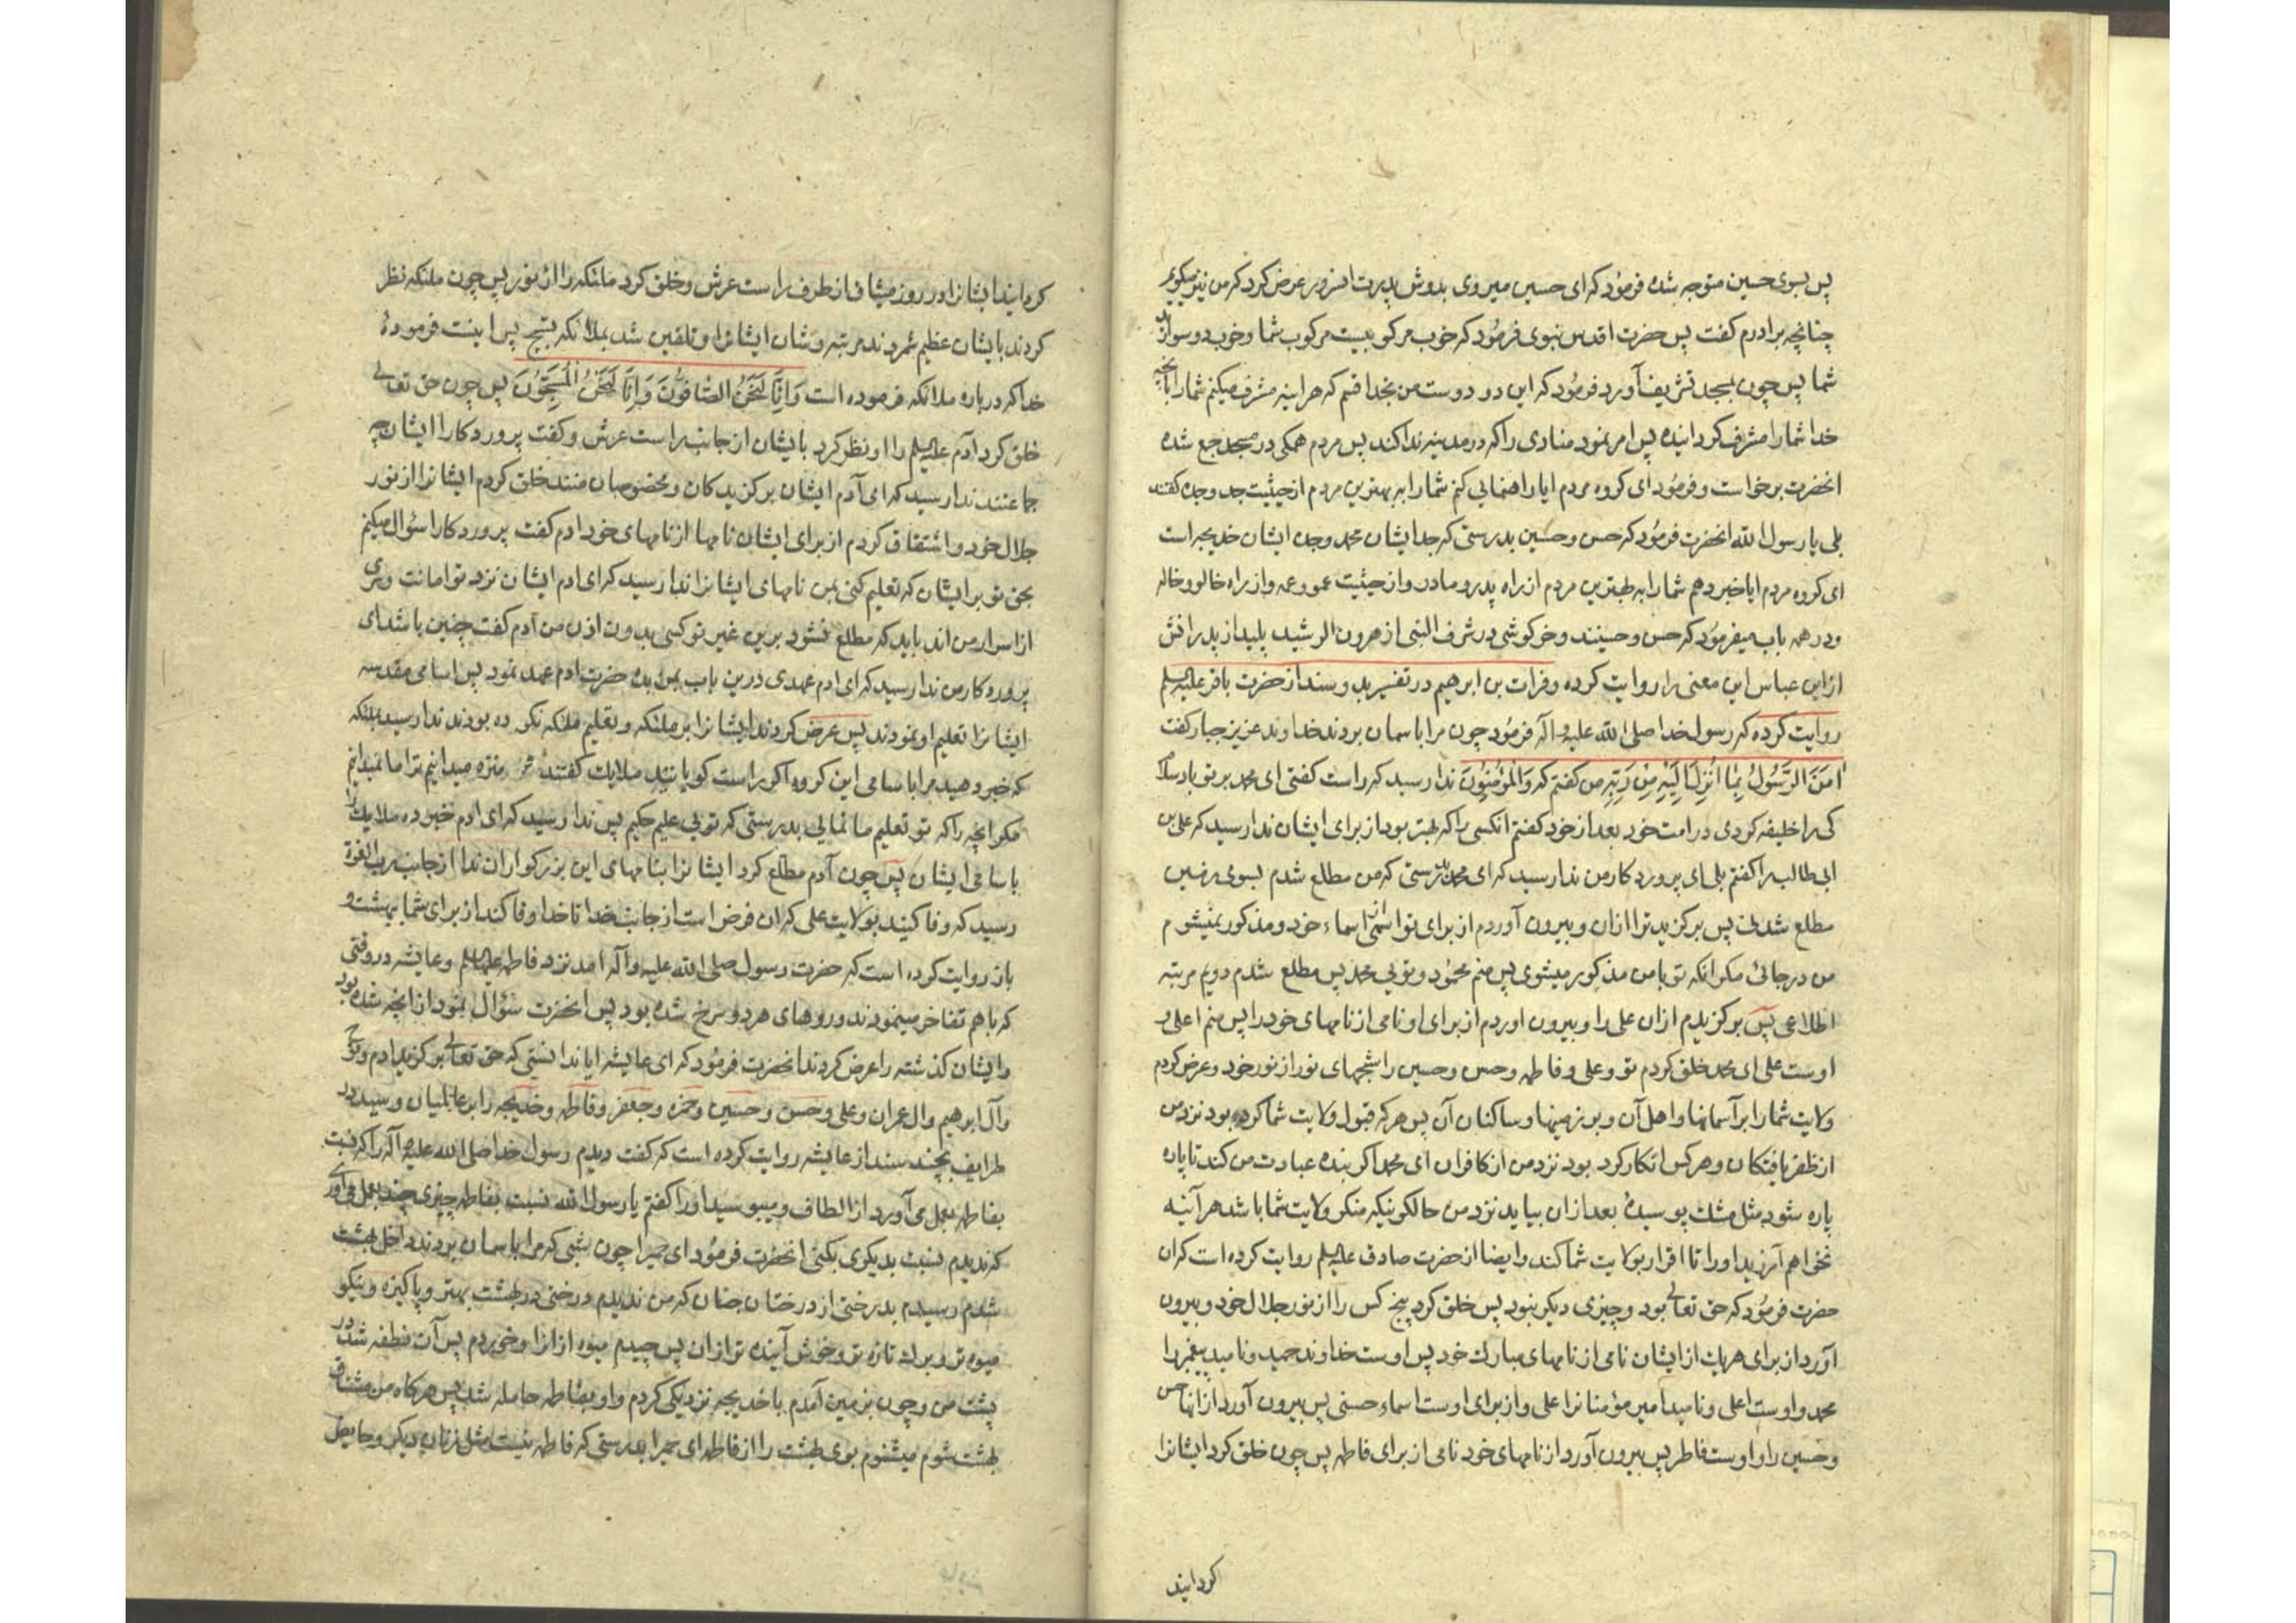 پس بسوی حسین متوجه شده فرمود که ای حسین میروی بدوش پدرت انسرور عرض کرد که من نیز میکویم
چنانچه برادرم کفت پس حضرت اقدس نبوی فرمود که خوب مرکوبیست مرکوب شما و خوب دو سوارند
شما پس چون بمسجد تشریف آورد فرمود که این دو دوست من بخدا قسم که هراینه مشرف میکنم شما را بآنچه
خدا شما را مشرف کردانیده پس امر نمود منادی را که در مدینه ندا کند پس مردم همکی در مسجد جمع شده
انحضرت برخواست و فرمود ای کروه مردم ایا راهنمایی کنم شما را ببهترین مردم از حیثیت جد و جده کفتند
بلی یا رسول الله انحضرت فرمود که حسن و حسین بدرستی که جد ایشان محمد و جده ایشان خدیجه است
ای کروه مردم ایا خبر دهم شما را به بهترین مردم از راه پدر و مادر و از حیثیت عمو و عمه و از راه خالو و خاله
و در همه باب میفرمود که حسن و حسینند و خرکوشی در شرف النبی از هرون الرشید پلید از پدرانش
از ابن عباس این معنی را روایت کرده و فرات بن ابرهیم در تفسیر بد و سند از حضرت باقر علیه السلم
روایت کرده که رسول خدا صلی الله علیه و اله فرمود چون مرا باسمان بردند خداوند عزیز جبار کفت
اٰمَنَ الرَّسُولُ بِمَا اُنْزِلَ اِلَیْهِ مِنْ رَبِّهِ من کفتم که وَالْمُؤْمِنُونَ ندا رسید که راست کفتی ای محمد بر تو باد سلام
کی را خلیفه کردی در امت خود بعد از خود کفتم انکسی را که بهتر بود از برای ایشان ندا رسید که علی بن
ابی طالب را کفتم بلی ای پرورد کار من ندا رسید که ای محمد بدرستی که من مطلع شدم بسوی زمین
مطلع شدنی پس برکزیدم ترا ازان و بیرون آوردم از برای تو اسمی از اسماء خود و مذکور نمیشوم
من در جائی مکر انکه تو با من مذکور میشوی پس منم محمود و تویی محمد پس مطلع شدم دویم مرتبه
اطلاعی پس برکزیدم ازان علی را و بیرون اوردم از برای او نامی از نامهای خود را پس منم اعلی و
اوست علی ای محمد خلق کردم تو و علی و فاطمه و حسن و حسین را شبحهای نور از نور خود و عرض کردم
ولایت شما را بر آسمانها و اهل آن و بر زمینها و ساکنان آن پس هر که قبول ولایت شما کرده بود نزد من
از ظفر یافتکان و هر کس انکار کرد بود نزد من از کافران ای محمد اکر بنده عبادت من کند تا پاره
پاره شود مثل مشک پوسیدهٔ بعد ازان بیاید نزد من حالکونیکه منکر ولایت شما باشد هرآنیه
نخواهم آمرزید او را تا اقرار بولایت شما کند و ایضا از حضرت صادق علیه السلم روایت کرده است که ان
حضرت فرمود که حق تعالی بود و چیزی دیکر بنود پس خلق کرد پنج کس را از نور جلال خود و بیرون
آورد از برای هریک از ایشان نامی از نامهای مبارک خود پس اوست خداوند حمید و نامید پیغمبر را
محمد و اوست اعلی و نامید امیر مؤمنانرا علی و از برای اوست اسماء حسنی پس بیرون آورد از انها حسن
و حسین را و اوست فاطر پس بیرون آورد از نامهای خود نامی از برای فاطمه پس چون خلق کرد ایشانرا
کردانید
کردانید ایشانرا در روز میثاق از طرف راست عرش و خلق کرد ملئکه را از نور پس چون ملئکه نظر
کردند بایشان عظیم شمردند مرتبه و شان ایشانرا و تلقین شد بملائکه تسبیح پس اینست فرمودهٔ
خدا که درباره ملائکه فرموده است وَاِنَّا لَنَحْنُ الصَّافُّونَ وَاِنَّا لَنَحْنُ الْمُسَبِّحُونَ پس چون حق تعالی
خلق کرد آدم علیه السلم را او نظر کرد بایشان از جانب راست عرش و کفت پرورد کارا ایشان چه
جماعتند ندا رسید که ای آدم ایشان برکزیدکان و مخصوصان منند خلق کردم ایشانرا از نور
جلال خود و اشتقاق کردم از برای ایشان نامها از نامهای خود ادم کفت پرورد کارا سؤال میکنم
بحق تو بر ایشان که تعلیم کنی بمن نامهای ایشانرا ندا رسید که ای ادم ایشان نزد تو امانت و سری
از اسرار من اند باید که مطلع نشود برین غیر تو کسی بدون اذن من آدم کفت چنین باشد ای
پرورد کار من ندا رسید که ای ادم عهدی درین باب بمن بده حضرت ادم عهد نمود پس اسامی مقدسه
ایشانرا تعلیم او نمودند پس عرض کردند ایشانرا بر ملئکه و تعلیم ملئکه نکرده بودند ندا رسید بملئکه
که خبر دهید مرا باسامی این کروه اکر راست کویانید ملایک کفتند منزه میدانیم ترا ما نمیدانیم
مکر انچه را که تو تعلیم ما نمایی بدرستی که تویی علیم حکیم پس ندا رسید که ای ادم خبر ده ملایک را
باسامی ایشان پس چون آدم مطلع کرد ایشانرا بنامهای این بزرکواران ندا از جانب رب العزة
رسید که وفا کنید بولایت علی که ان فرض است از جانب خدا تا خدا وفا کند از برای شما ببهشت و
باز روایت کرده است که حضرت رسول صلی الله علیه و آله امد نزد فاطمه علیها السلم و عایشه در وقتی
که باهم تفاخر مینمودند و روهای هر دو سرخ شده بود پس انحضرت سؤال نمود از انچه شده بود
و ایشان کذشته را عرض کردند انحضرت فرمود که ای عایشه ایا ندانستی که حق تعالی برکزید ادم و نوح
و آل ابرهیم و ال عمران و علی و حسن و حسین و حمزه و جعفر و فاطمه و خدیجه را بر عالمیان و سید در
طرایف بچند سند از عایشه روایت کرده است که کفت دیدم رسول خدا صلی الله علیه و آله را که نسبت
بفاطمه بعمل می آورد از الطاف و میبوسید او را کفتم یا رسول الله نسبت بفاطمه چیزی چند بعمل می آوری
که ندیدم نسبت بدیکری بکنی انحضرت فرمود ای حمیرا چون شبی که مرا باسمان بردند داخل بهشت
شدم رسیدم بدرختی از درختان جنان که من ندیدم درختی در بهشت بهتر و پاکیزه و نیکو
میوه تر و برک تازه تر و خوش آینده تر ازان پس چیدم میوه از انرا و خوردم پس آن نطفه شد در
پشت من و چون بزمین آمدم با خدیجه نزدیکی کردم و او بفاطمه حامله شد پس هرکاه من مشتاق
بهشت شوم میشنوم بوی بهشت را از فاطمه ای حمیرا بدرستی که فاطمه نیست مثل زنان دیکر و حایض